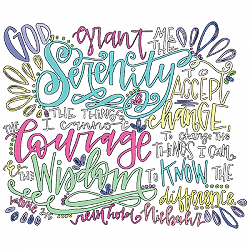 GOD grant ME THE
Serenity TO ACCEPT
THE THINGS I CANNOT CHANGE
THE Courage To change THE THINGS I CAN
THE Wisdom TO KNOW THE
difference.
reinhold Niebuhr